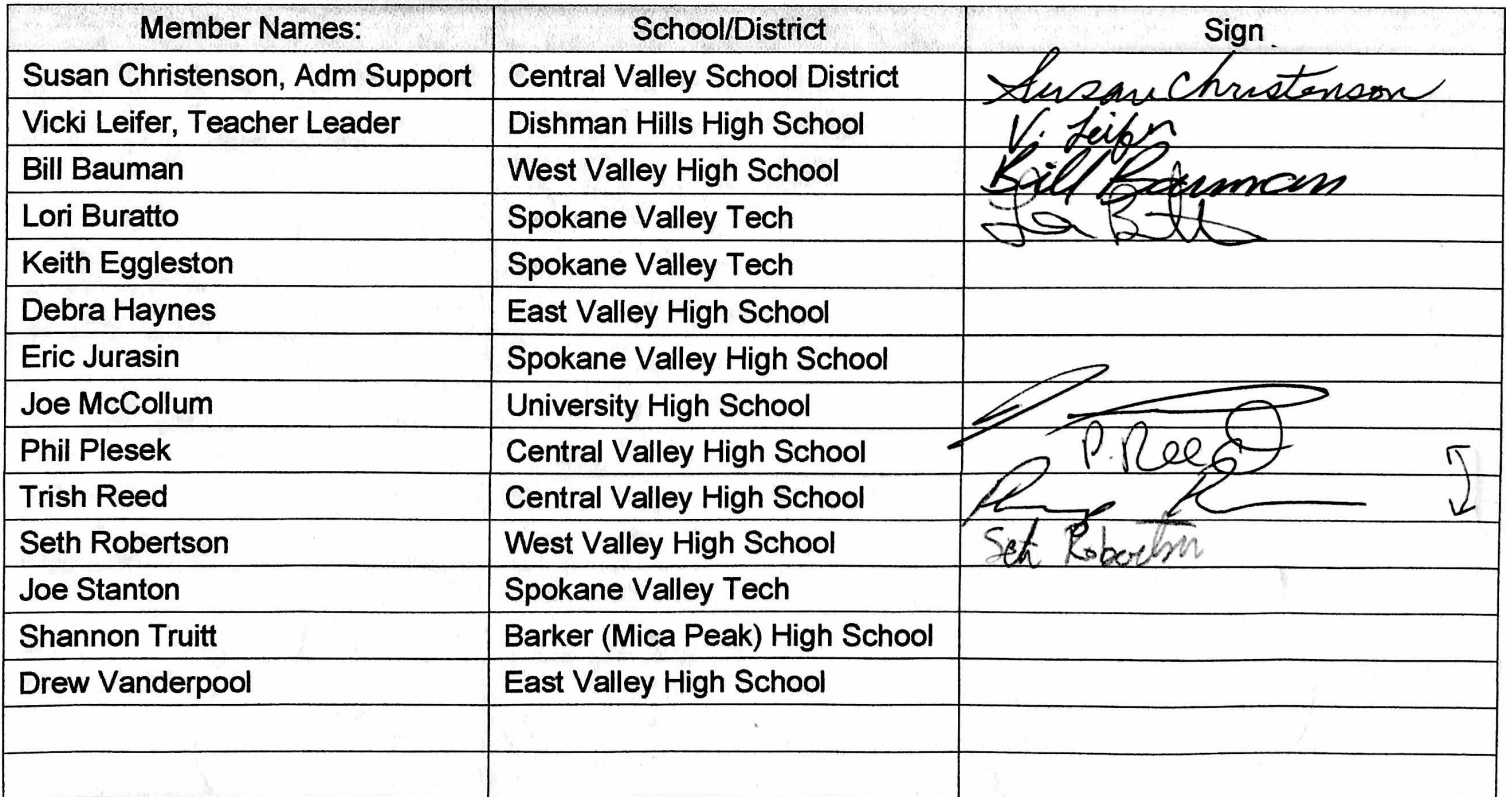 Member Names: School/District Sign
Susan Christenson, Adm Support Central Valley School District Susan Christenson
Vicki Leifer, Teacher Leader Dishman Hills High School V. Leifer
Bill Bauman West Valley High School Bill Bauman
Lori Buratto Spokane Valley Tech
Keith Eggleston Spokane Valley Tech
Debra Haynes East Valley High School
Eric Jurasin Spokane Valley High School
Joe McCollum University High School
Phil Plesek Central Valley High School P. Reed
Trish Reed Central Valley High School
Seth Robertson West Valley High School Seth Robertson
Joe Stanton Spokane Valley Tech
Shannon Truitt Barker (Mica Peak) High School
Drew Vanderpool East Valley High School